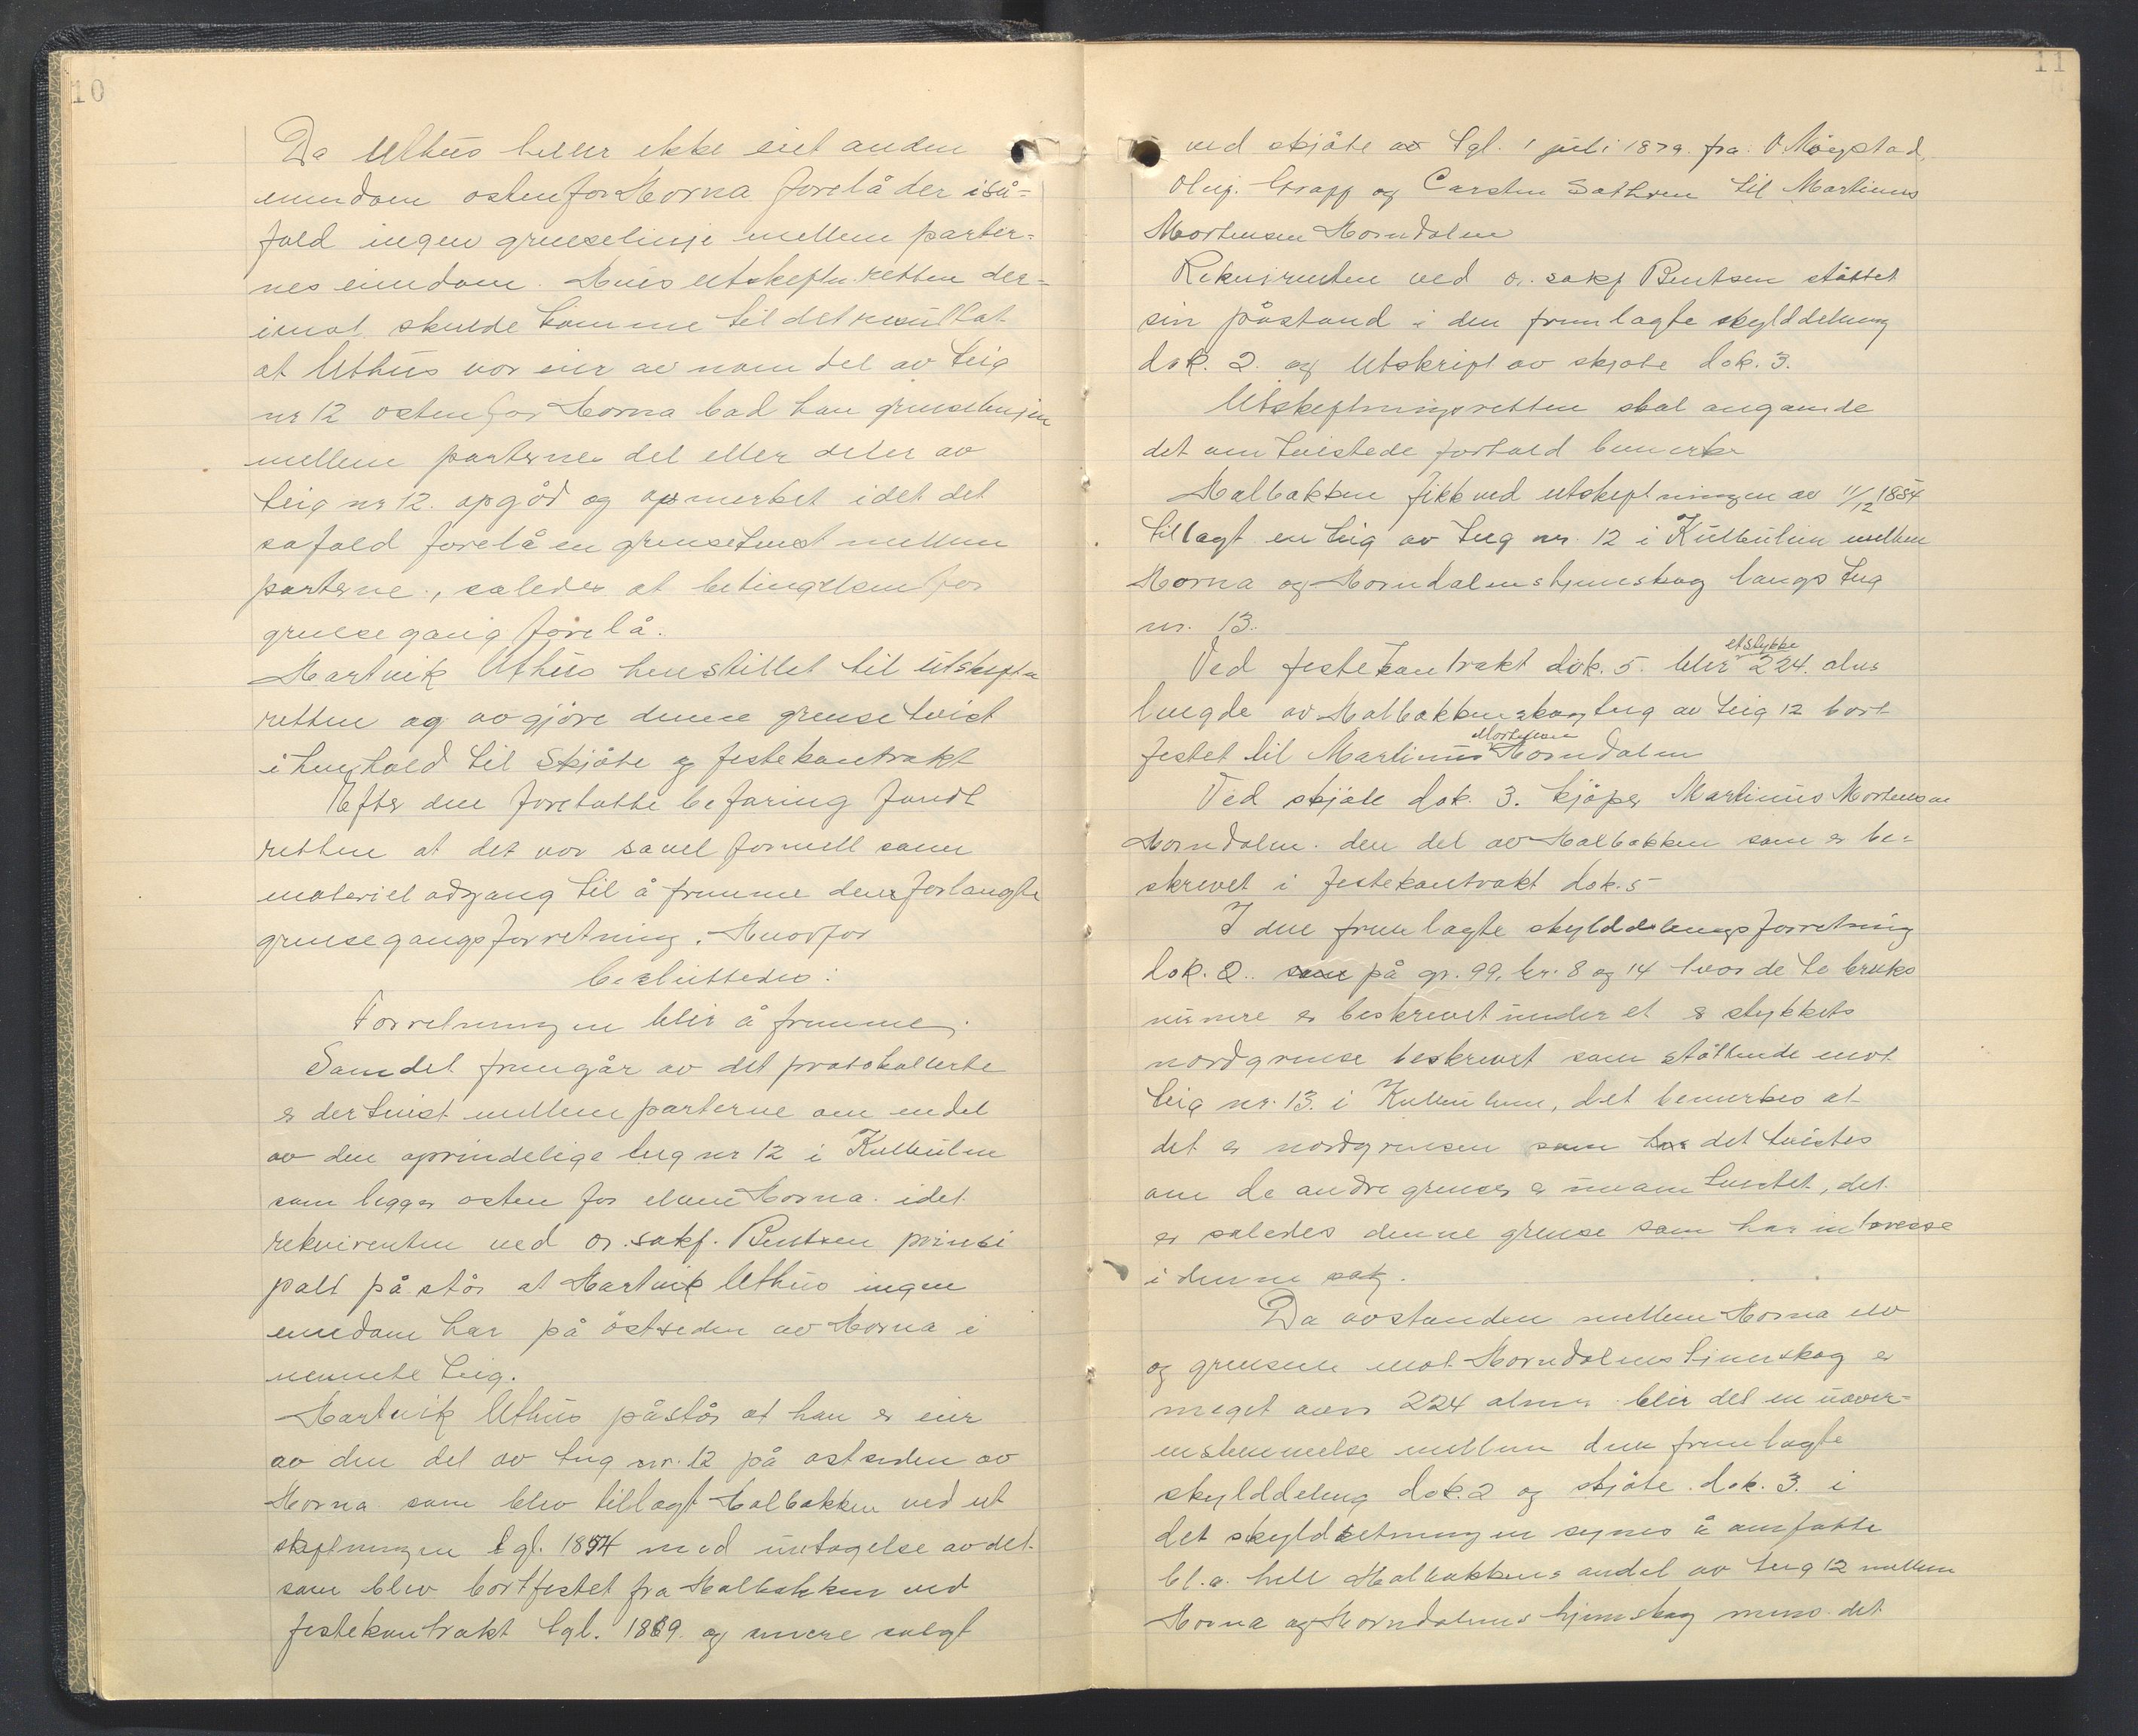 10
Da Uthus heller ikke eiet anden
eiendom østenfor Horna forelå der iså-
fald ingen grenselinje mellem parter-
nes eiendom. Hvis utskiftn. retten der-
imot skulde komme til det resultat
at Uthus var eier av noen del av teig
nr 12 østenfor Horna bad han grenselinjen
mellem parternes del eller deler av
teig nr 12. opgåd og opmerket idet det
safald forelå en grensetvist mellem
parterne, saledes at betingelsen for
grensegang forelå.
Hartvik Uthus henstillet til utskiftn
retten og avgjøre denne grensetvist
i henhold til Skjøte og festekontrakt
Efter den foretatte befaring fandt
retten at det var savel formell som
materiel adgang til å fremme den forlangte
grensegangsforretning. Hvorfor
besluttedes:
Forretningen blir å fremme.
Som det fremgår av det protokollerte
er der tvist mellem parterne om endel
av den oprindelige teig nr 12 i Kulbulien
som ligger østen for elven Horna. idet
rekvirenten ved o. sakf. Bentsen prinsi
palt på står at Hartvik Uthus ingen
eiendom har på östsiden av Horna i
nevnte teig.
Hartvik Uthus påstår at han er eier
av den del av teig nr. 12 på østsiden av
Horna som blev tillagt Halbakken ved ut
skiftningen tgl. 1854 med undtagelse av det
som blev bortfestet fra Halbakken ved
festekontrakt tgl. 1869 og senere solgt
11
ved skjøte av tgl. 1 juli 1879. fra O
Oluf. og Carsten Sathren til Martinus
Mortensen Horndalen
Rekvirenten ved o. sakf Bentsen støttet
sin påstand i den fremlagte skylddeling
dok. 2. og Utskrift av skjøte dok. 3.
Utskiftningsretten skal angaende
det omtvistede forhold bemerke
Halbakken fikk ved utskiftningen av 11/12 1854
tillagt en teig av teig nr. 12 i Kulbulien mellem
Horna og Horndalens hjemskog langs teig
nr. 13.
Ved festekontrakt dok. 5. blir et stykke 224. alens
lengde av Halbakkens skogteig av teig 12 bort
festet til Martinus Mortensen Horndalen
Ved skjøte dok. 3. kjøper Martinus Mortensen
Horndalen. den del av Halbakken som er be-
skrevet i festekontrakt dok. 5
I den fremlagte skylddelingsforretning
dok. 2.. på gr. 99, br. 8 og 14 hvor de to bruks
numre er beskrevet under et er stykkets
nordgrense beskrevet som støttende mot
teig nr. 13. i Kulbulien, det bemerkes at
det er nordgrensen som det tvistes
om de andre grenser er uomtvistet, det
er saledes denne grense som har interesse
i denne sak.
Da avstanden mellem Horna elv
og grensen mot Horndalens hjemskog er
meget over 224 alen. blir det en uover-
enstemmelse mellem den fremlagte
skylddeling dok. 2 og skjøte dok. 3. i
det skyldsetningen synes å omfatte
bl.a. hele Halbakkens andel av teig 12 mellem
Horna og Horndalens hjemskog mens det